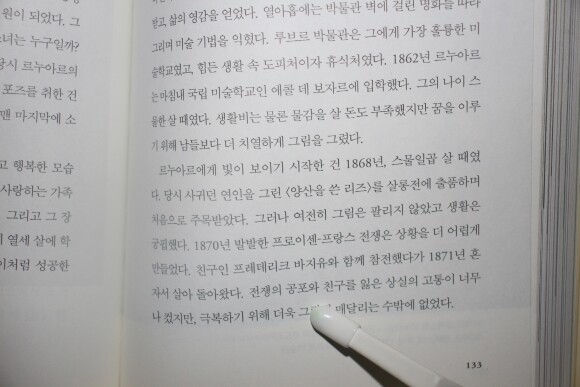 원이 되었다. 그
녀는 누구일까?
당시 르누아르의
포즈를 취한 건
맨 마지막에 소
고 행복한 모습
사랑하는 가족
그리고 그 장
이 열세 살에 학
이처럼 성공한
하고 삶의 영감을 얻었다. 열아홉에는 박물관 벽에 걸린 명화를 따라
그리며 미술 기법을 익혔다. 루브르 박물관은 그에게 가장 훌륭한 미
술학교였고, 힘든 생활 속 도피처이자 휴식처였다. 1862년 르누아르
는 마침내 국립 미술학교인 에콜 데 보자르에 입학했다. 그의 나이 스
물한 살 때였다. 생활비는 물론 물감을 살 돈도 부족했지만 꿈을 이루
기 위해 남들보다 더 치열하게 그림을 그렸다.
르누아르에게 빛이 보이기 시작한 건 1868년, 스물일곱 살 때였
다. 당시 사귀던 연인을 그린 〈양산을 쓴 리즈〉를 살롱전에 출품하며
처음으로 주목받았다. 그러나 여전히 그림은 팔리지 않았고 생활은
궁핍했다. 1870년 발발한 프로이센-프랑스 전쟁은 상황을 더 어렵게
만들었다. 친구인 프레데리크 바지유와 함께 참전했다가 1871년 혼
자서 살아 돌아왔다. 전쟁의 공포와 친구를 잃은 상실의 고통이 너무
나 컸지만, 극복하기 위해 더욱 매달리는 수밖에 없었다.
133